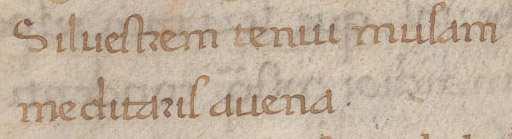 Siluestrem tenui musam
meditaris auena.